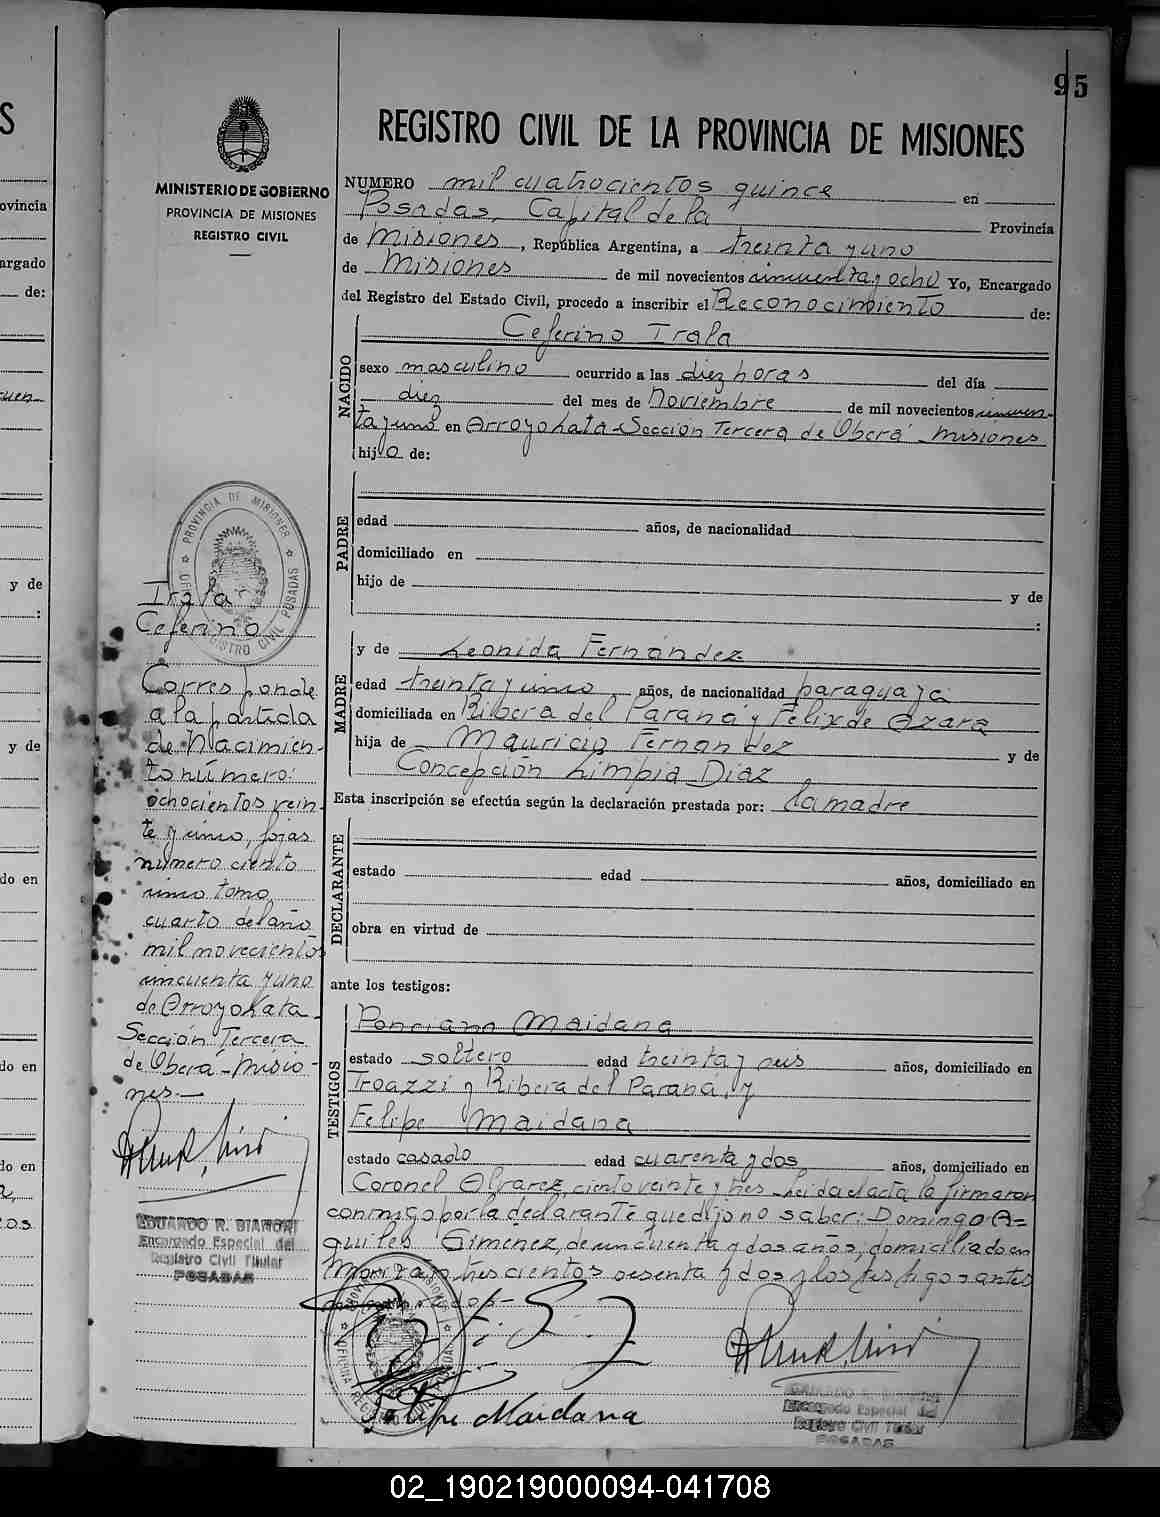 95
REGISTRO CIVIL DE LA PROVINCIA DE MISIONES
MINISTERIO DE GOBIERNO
PROVINCIA DE MISIONES
REGISTRO CIVIL
NUMERO mil cuatrocientos quince en
Posadas, Capital de la Provincia
de Misiones, República Argentina, a treinta y uno
de Misiones de mil novecientos cincuenta y ocho Yo, Encargado
del Registro del Estado Civil, procedo a inscribir el Reconocimiento de:
NACIDO
Ceferino Irala
sexo masculino ocurrido a las diez horas del día
diez del mes de Noviembre de mil novecientos cincuen-
ta y uno en Arroyo Kata-Sección Tercera de Oberá - Misiones
hijo de:
PADRE
edad años, de nacionalidad
domiciliado en
hijo de y de
:
MADRE
y de Leonida Fernández
edad treinta y cinco años, de nacionalidad paraguaya
domiciliada en Ribera del Paraná y Felix de Azara
hija de Mauricio Fernandez y de
Concepción Limpia Díaz
Esta inscripción se efectúa según la declaración prestada por: la madre
DECLARANTE
estado edad años, domiciliado en
obra en virtud de
ante los testigos:
TESTIGOS
Ponciano Maidana
estado soltero edad treinta y seis años, domiciliado en
Troazzi y Ribera del Paraná, y
Felipe Maidana
estado casado edad cuarenta y dos años, domiciliado en
Coronel Alvarez, ciento veinte y tres - Leida el acta la firmaron
conmigo por la declarante que dijo no saber: Domingo A=
quiles Gimenez, de cincuenta y dos años, domiciliado en
trescientos sesenta y dos y los testigos antes
Felipe Maidana
Irala
Ceferino
Corresponde
a la partida
de Nacimien-
to número:
ochocientos vein-
te y cinco, fojas
número ciento
cinco tomo
cuarto del año
mil novecientos
cincuenta y uno
de Arroyo Kata-
Sección Tercera
de Oberá - Misio-
nes.-
EDUARDO R. BIANORI
Encargado Especial del
Registro Civil Titular
POSADAS
Encargado Especial del
Registro Civil Titular
POSADAS
PROVINCIA DE MISIONES
REGISTRO CIVIL POSADAS
S
ovincia
argado
de:
y de
:
y de
do en
do en
do en
02_190219000094-041708